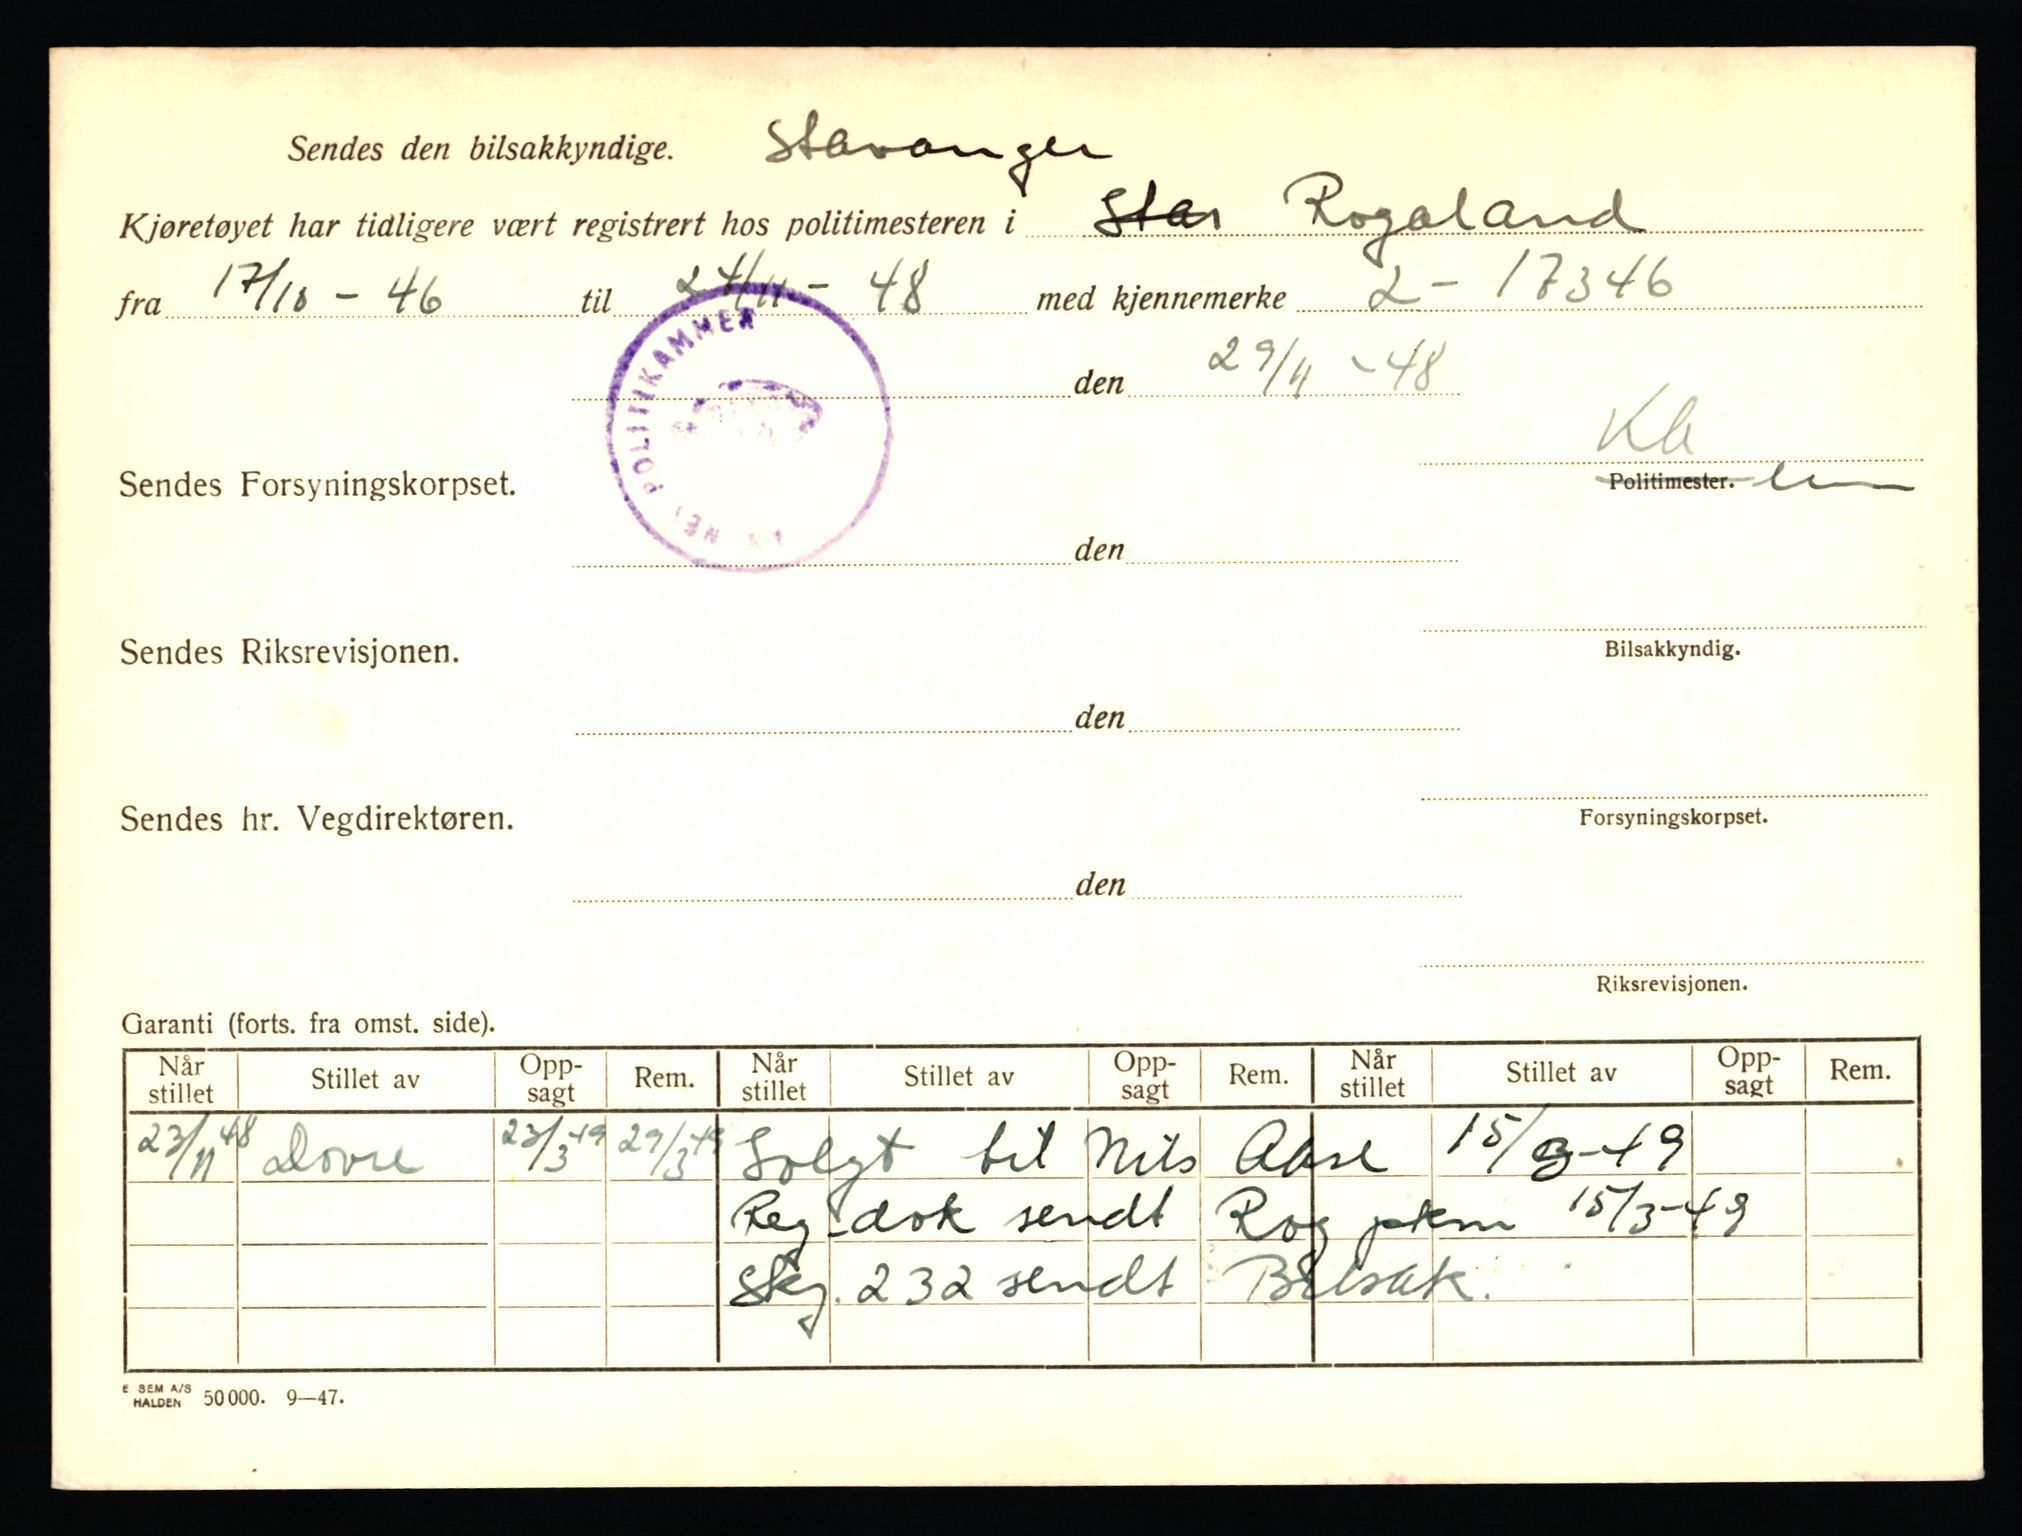 Sendes den bilsakkyndige. Stavanger
Kjøretøyet har tidligere vært registrert hos politimesteren i Stav Rogaland
fra 17/10 - 46 til 24/11 - 48 med kjennemerke L - 17346
den 29/11 - 48
POLITIKAMMER
Sendes Forsyningskorpset.
Politimester.
den
Sendes Riksrevisjonen.
Bilsakkyndig.
den
Sendes hr. Vegdirektøren.
Forsyningskorpset.
den
Riksrevisjonen.
Garanti (forts. fra omst. side).
Når stillet Stillet av Opp- sagt Rem. Når stillet Stillet av Opp- sagt Rem. Når stillet Stillet av Opp- sagt Rem.
23/11 48 Dovre 23/3 49 29/3 49 Solgt til Nils Aase 15/3-49
Reg-dok sendt Rog pkm 15/3-49
Skj. 232 sendt Bilsak.
E SEM A/S HALDEN 50 000. 9—47.